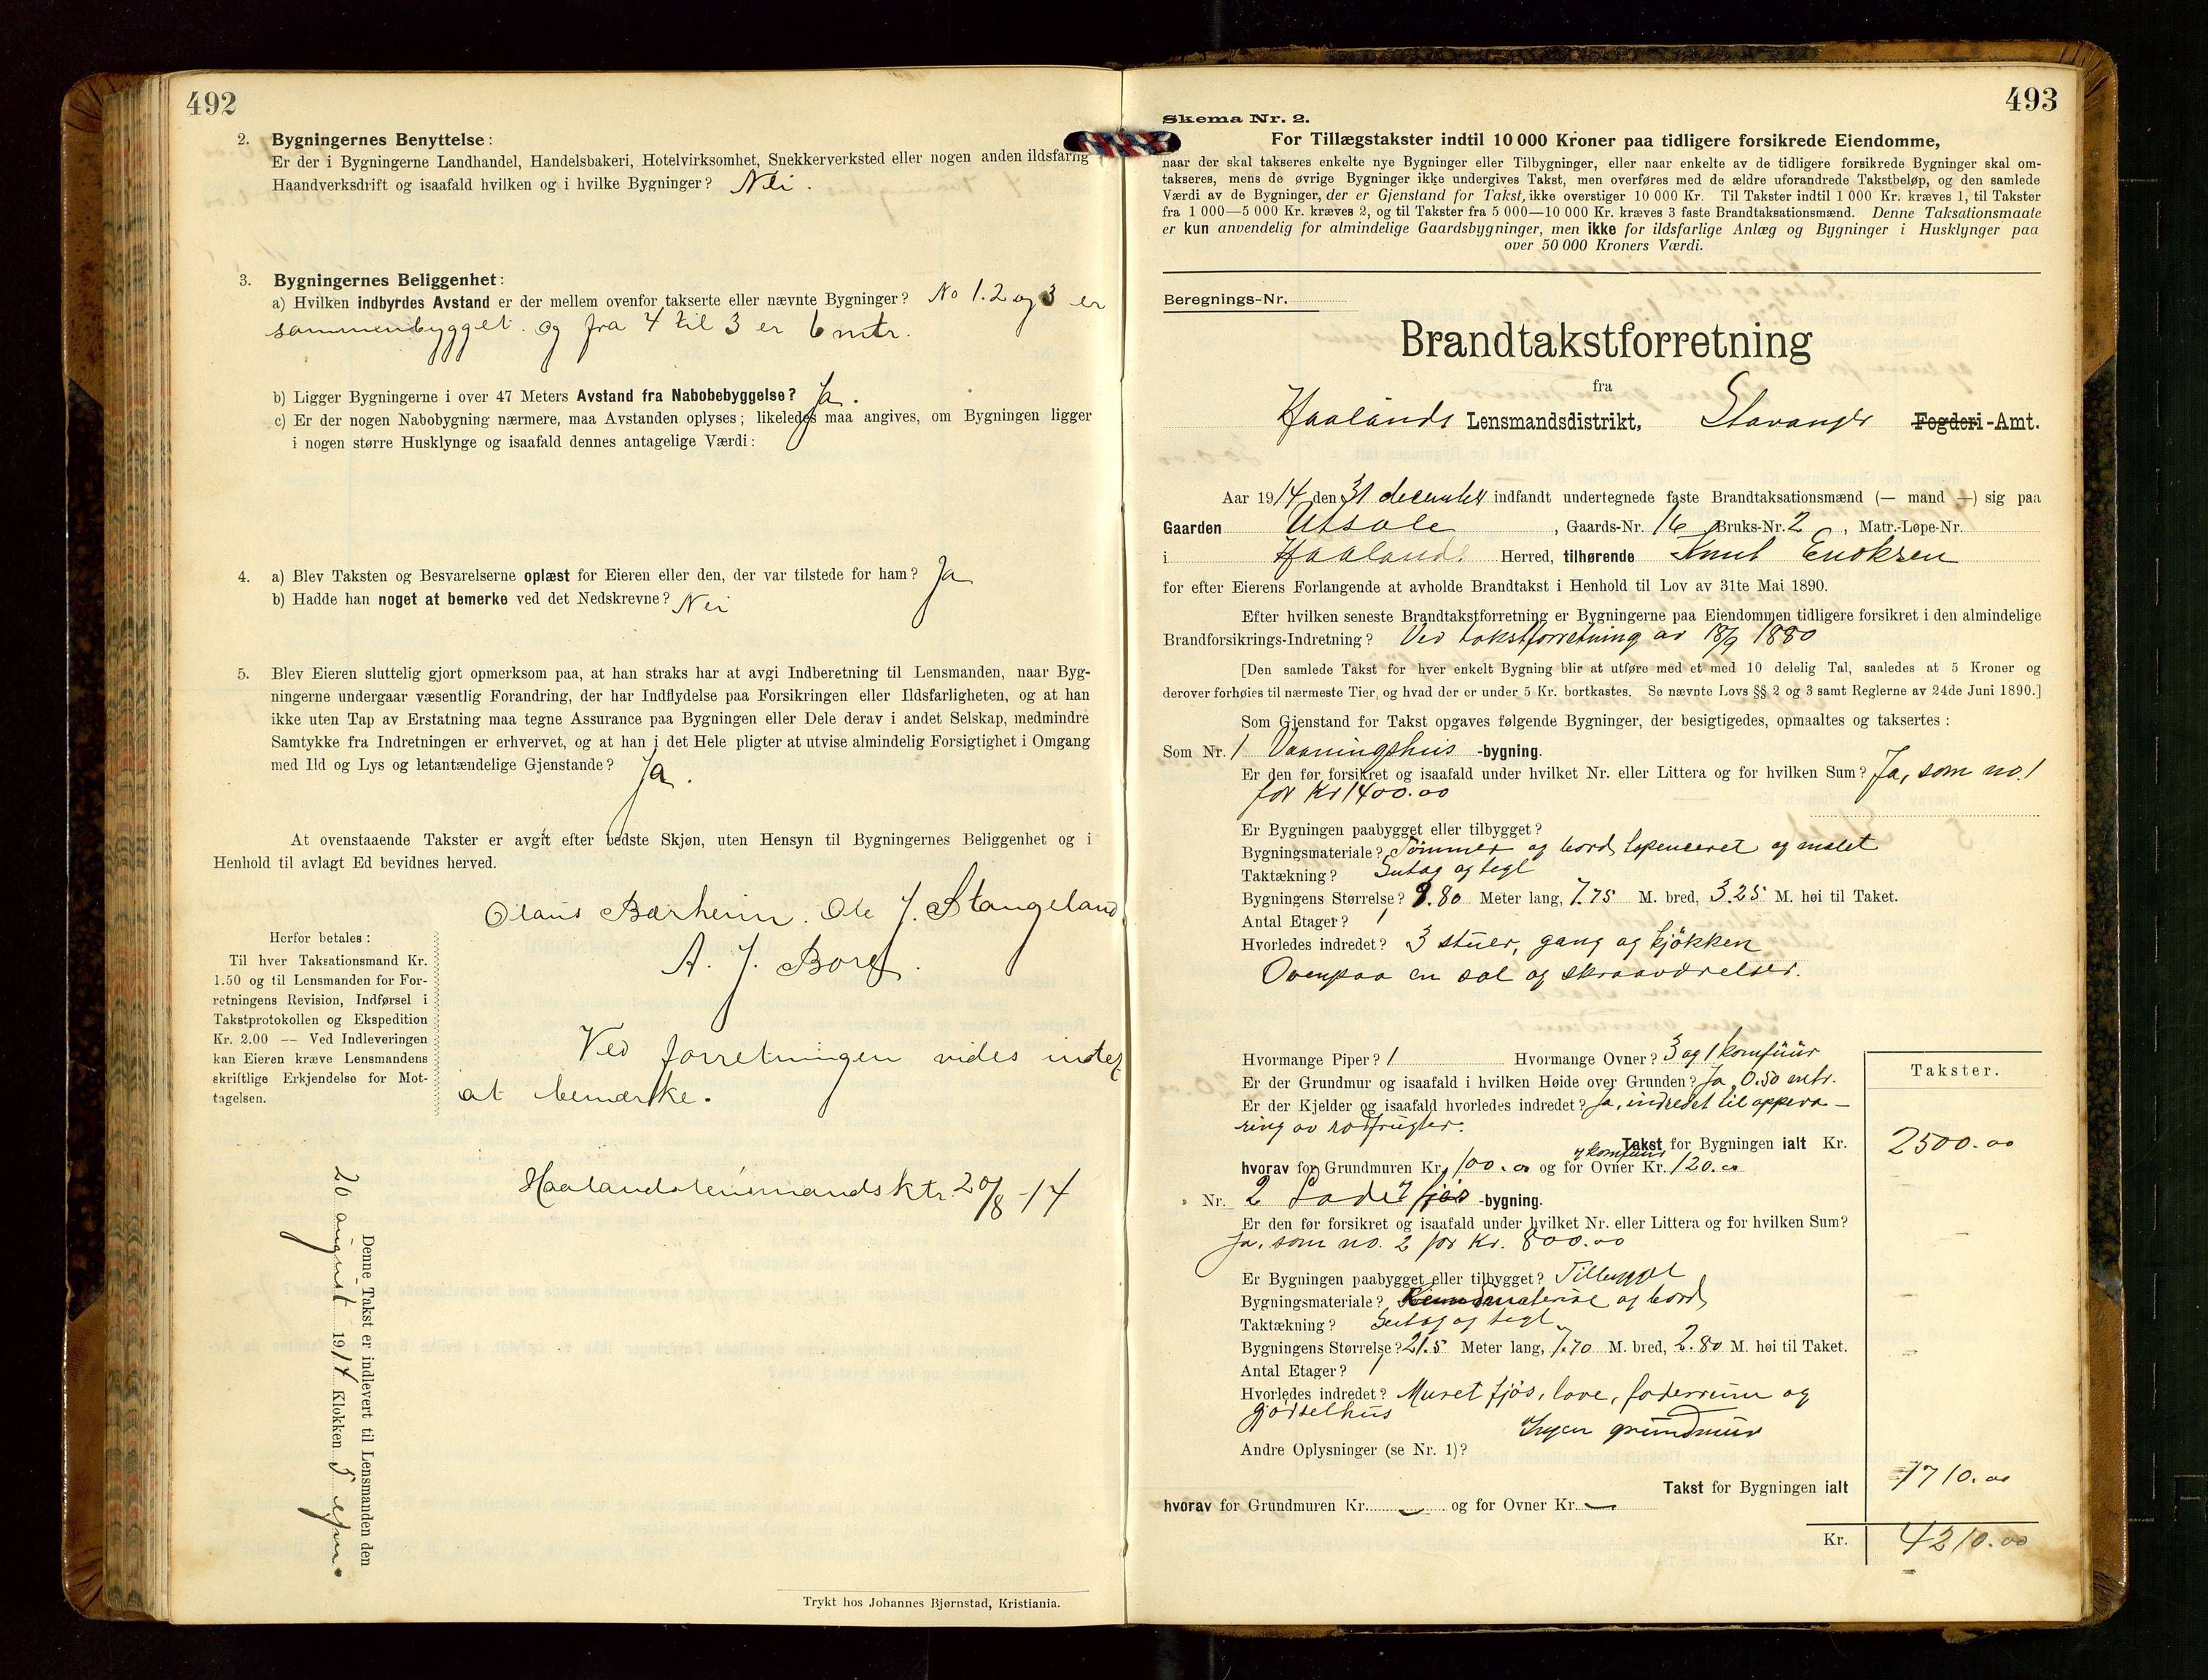 492
2. Bygningernes Benyttelse:
Er der i Bygningerne Landhandel, Handelsbakeri, Hotelvirksomhet, Snekkerverksted eller nogen anden ildsfarlig
Haandverksdrift og isaafald hvilken og i hvilke Bygninger? Nei.
3. Bygningernes Beliggenhet:
a) Hvilken indbyrdes Avstand er der mellem ovenfor takserte eller nævnte Bygninger? No 1.2 og 3 er
sammenbygget. og fra 4 til 3 er 6 mtr.
b) Ligger Bygningerne i over 47 Meters Avstand fra Nabobebyggelse? Ja.
c) Er der nogen Nabobygning nærmere, maa Avstanden oplyses; likeledes maa angives, om Bygningen ligger
i nogen større Husklynge og isaafald dennes antagelige Værdi:
4. a) Blev Taksten og Besvarelserne oplæst for Eieren eller den, der var tilstede for ham? Ja
b) Hadde han noget at bemerke ved det Nedskrevne? Nei
5. Blev Eieren sluttelig gjort opmerksom paa, at han straks har at avgi Indberetning til Lensmanden, naar Byg-
ningerne undergaar væsentlig Forandring, der har Indflydelse paa Forsikringen eller Ildsfarligheten, og at han
ikke uten Tap av Erstatning maa tegne Assurance paa Bygningen eller Dele derav i andet Selskap, medmindre
Samtykke fra Indretningen er erhvervet, og at han i det Hele pligter at utvise almindelig Forsigtighet i Omgang
med Ild og Lys og letantændelige Gjenstande? Ja.
At ovenstaaende Takster er avgit efter bedste Skjøn, uten Hensyn til Bygningernes Beliggenhet og i
Henhold til avlagt Ed bevidnes herved.
Olaus Bærheim. Ole J. Stangeland
A. J. Bore.
Herfor betales:
Til hver Taksationsmand Kr.
1.50 og til Lensmanden for For-
retningens Revision, Indførsel i
Takstprotokollen og Ekspedition
Kr. 2.00 -- Ved Indleveringen
kan Eieren kræve Lensmandens
skriftlige Erkjendelse for Mot-
tagelsen.
Ved forretningen vides intet
at bemærke.
Haalandslensmandsktr. 20/8 -14
Denne Takst er indlevert til Lensmanden den
20 august 1914 Klokken 5 efm.
Trykt hos Johannes Bjørnstad, Kristiania.
493
Skema Nr. 2.
For Tillægstakster indtil 10 000 Kroner paa tidligere forsikrede Eiendomme,
naar der skal takseres enkelte nye Bygninger eller Tilbygninger, eller naar enkelte av de tidligere forsikrede Bygninger skal om-
takseres, mens de øvrige Bygninger ikke undergives Takst, men overføres med de ældre uforandrede Takstbeløp, og den samlede
Værdi av de Bygninger, der er Gjenstand for Takst, ikke overstiger 10 000 Kr. Til Takster indtil 1 000 Kr. kræves 1, til Takster
fra 1 000—5 000 Kr. kræves 2, og til Takster fra 5 000—10 000 Kr. kræves 3 faste Brandtaksationsmænd. Denne Taksationsmaate
er kun anvendelig for almindelige Gaardsbygninger, men ikke for ildsfarlige Anlæg og Bygninger i Husklynger paa
over 50 000 Kroners Værdi.
Beregnings-Nr.
Brandtakstforretning
fra
Haalands Lensmandsdistrikt, Stavanger Fogderi-Amt.
Aar 1914 den 31 december indfandt undertegnede faste Brandtaksationsmænd (— mand —) sig paa
Gaarden Utsole, Gaards-Nr. 16 Bruks-Nr. 2, Matr.-Løpe-Nr.
i Haalands Herred, tilhørende Knut Enoksen
for efter Eierens Forlangende at avholde Brandtakst i Henhold til Lov av 31te Mai 1890.
Efter hvilken seneste Brandtakstforretning er Bygningerne paa Eiendommen tidligere forsikret i den almindelige
Brandforsikrings-Indretning? Ved takstforretning av 18/9 1880
[Den samlede Takst for hver enkelt Bygning blir at utføre med et med 10 delelig Tal, saaledes at 5 Kroner og
derover forhøies til nærmeste Tier, og hvad der er under 5 Kr. bortkastes. Se nævnte Lovs §§ 2 og 3 samt Reglerne av 24de Juni 1890.]
Som Gjenstand for Takst opgaves følgende Bygninger, der besigtigedes, opmaaltes og taksertes:
Som Nr. 1 Vaaningshus -bygning.
Er den før forsikret og isaafald under hvilket Nr. eller Littera og for hvilken Sum? Ja, som no. 1
for Kr 1400.00
Er Bygningen paabygget eller tilbygget?
Bygningsmateriale? Tømmer og bord, tapenceret og malet
Taktækning? Sutag og tegl
Bygningens Størrelse? 9.80 Meter lang, 7.75 M. bred, 3.25 M. høi til Taket.
Antal Etager? 1
Hvorledes indredet? 3 stuer, gang og kjøkken
Ovenpaa en sal og skraaværelser.
Hvormange Piper? 1 Hvormange Ovner? 3 og 1 komfüür
Er der Grundmur og isaafald i hvilken Høide over Grunden? Ja, 0.50 mtr.
Er der Kjelder og isaafald hvorledes indredet? Ja, indredet til oppeva-
ring av rodfrugter.
Takster.
Takst for Bygningen ialt Kr. 2500.00
hvorav for Grundmuren Kr. 100.00 og for Ovner og komfüür Kr. 120.00
Nr. 2 Lade og fjøs -bygning.
Er den før forsikret og isaafald under hvilket Nr. eller Littera og for hvilken Sum?
Ja, som no. 2 for Kr. 800.00
Er Bygningen paabygget eller tilbygget? Tilbygget
Bygningsmateriale? materiale og bord
Taktækning? Sutag og tegl
Bygningens Størrelse? 21.5 Meter lang, 7.70 M. bred, 2.80 M. høi til Taket.
Antal Etager? 1
Hvorledes indredet? Muret fjøs, love, foderrum og
gjødselhus
Ingen grundmur
Andre Oplysninger (se Nr. 1)?
Takst for Bygningen ialt 1710.00
hvorav for Grundmuren Kr. — og for Ovner Kr. —
Kr. 4210.00